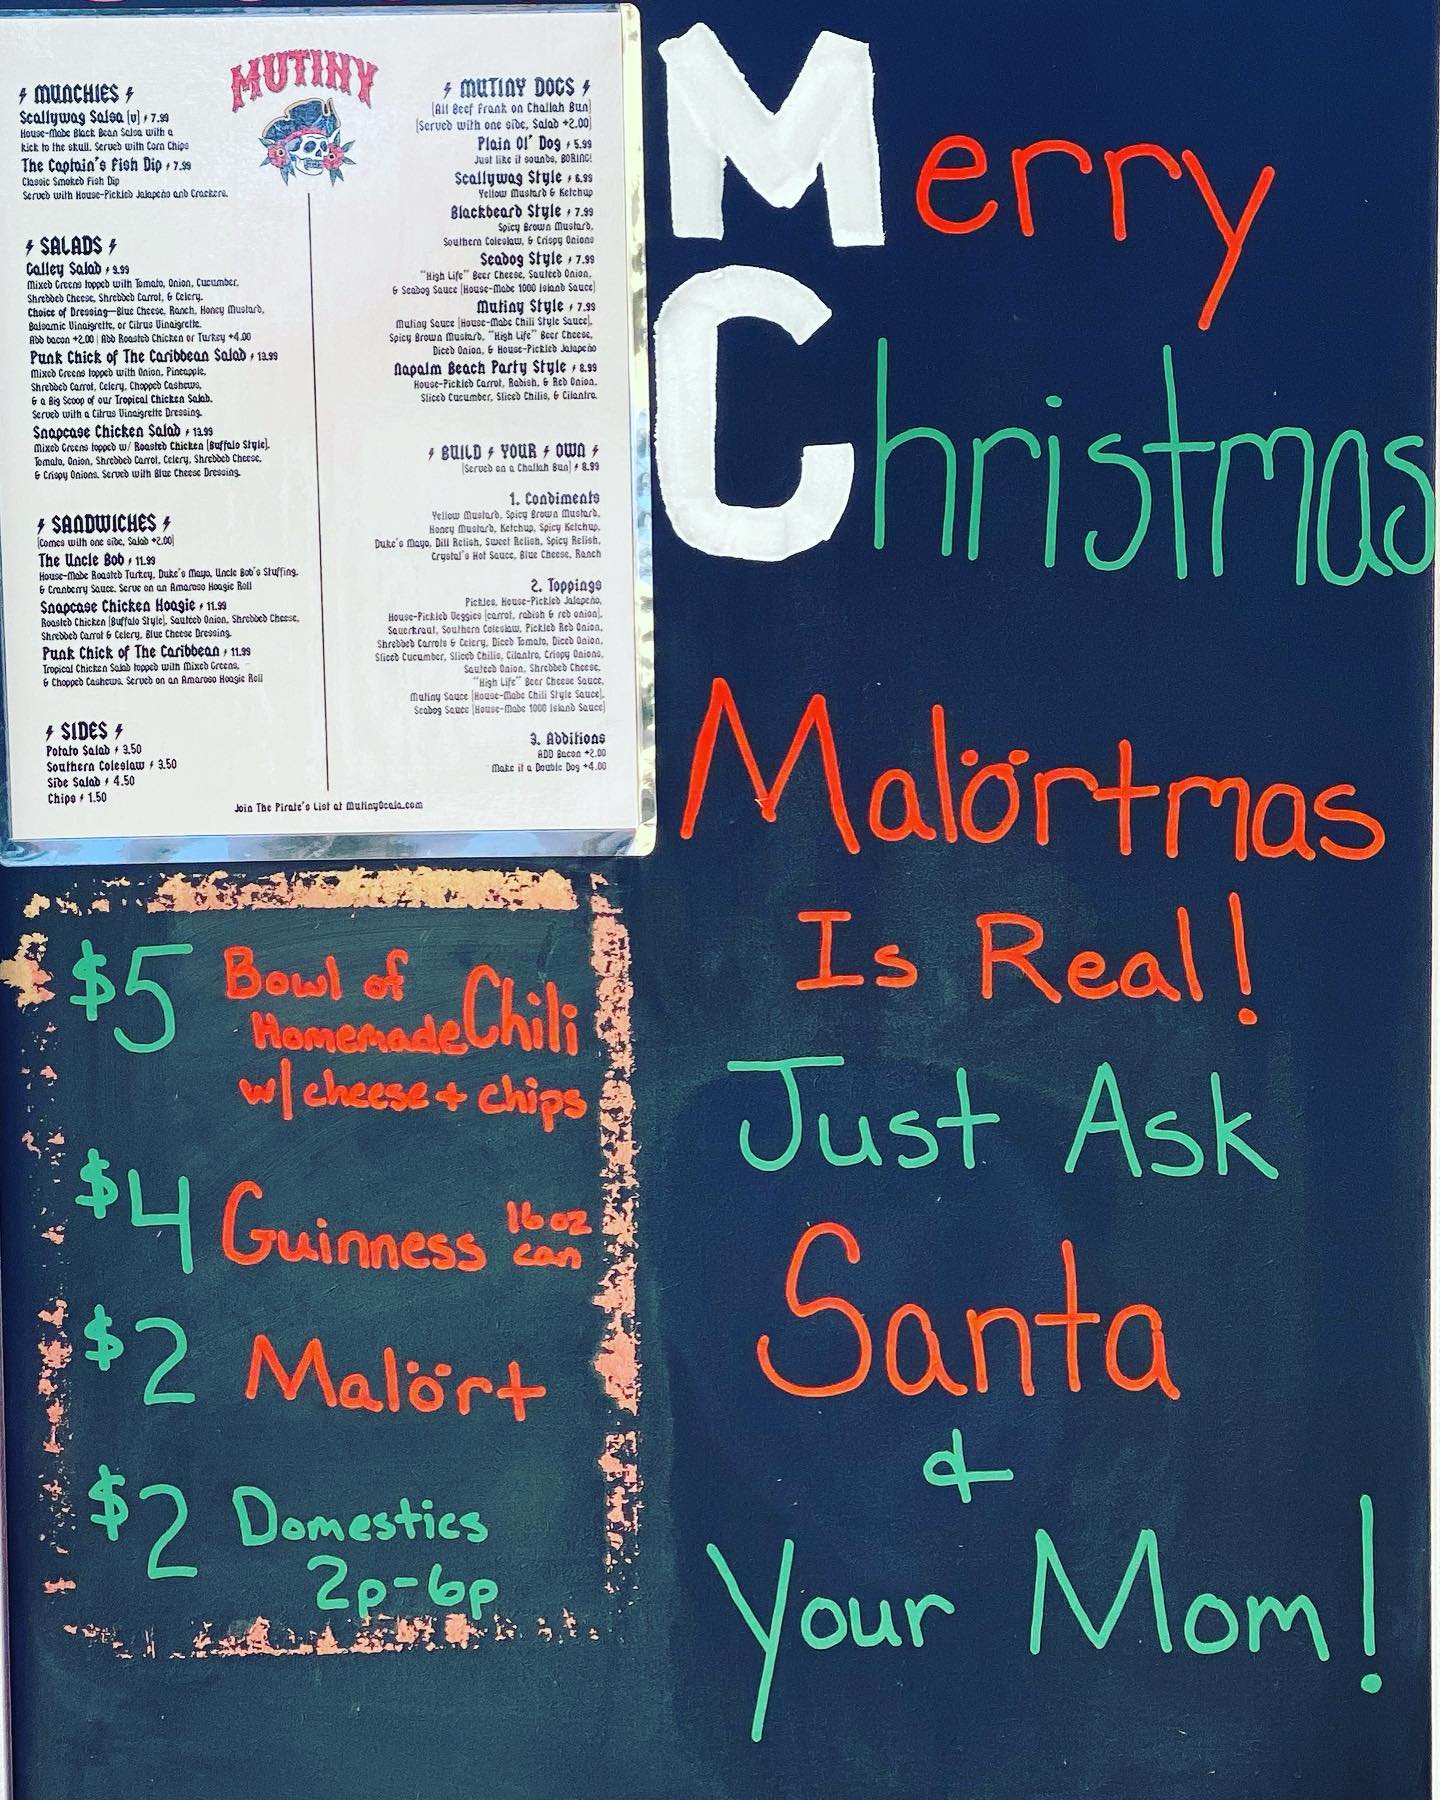 MUTINY
⚡ MUNCHIES ⚡
Scallywag Salsa (v) ⚡ 7.99
House-Made Black Bean Salsa with a
kick to the skull. Served with Corn Chips
The Captain's Fish Dip ⚡ 7.99
Classic Smoked Fish Dip
Served with House-Pickled Jalapeño and Crackers.
⚡ SALADS ⚡
Galley Salad ⚡ 9.99
Mixed Greens topped with Tomato, Onion, Cucumber,
Shredded Cheese, Shredded Carrot, & Celery.
Choice of Dressing—Blue Cheese, Ranch, Honey Mustard,
Balsamic Vinaigrette, or Citrus Vinaigrette.
Add bacon +2.00 | Add Roasted Chicken or Turkey +4.00
Punk Chick of The Caribbean Salad ⚡ 13.99
Mixed Greens topped with Onion, Pineapple,
Shredded Carrot, Celery, Chopped Cashews,
& a Big Scoop of our Tropical Chicken Salad.
Served with a Citrus Vinaigrette Dressing.
Snapcase Chicken Salad ⚡ 13.99
Mixed Greens topped w/ Roasted Chicken (Buffalo Style),
Tomato, Onion, Shredded Carrot, Celery, Shredded Cheese,
& Crispy Onions. Served with Blue Cheese Dressing.
⚡ SANDWICHES ⚡
(Comes with one side, Salad +2.00)
The Uncle Bob ⚡ 11.99
House-Made Roasted Turkey, Duke's Mayo, Uncle Bob's Stuffing,
& Cranberry Sauce. Serve on an Amaroso Hoagie Roll
Snapcase Chicken Hoagie ⚡ 11.99
Roasted Chicken (Buffalo Style), Sauteed Onion, Shredded Cheese,
Shredded Carrot & Celery, Blue Cheese Dressing.
Punk Chick of The Caribbean ⚡ 11.99
Tropical Chicken Salad topped with Mixed Greens,
& Chopped Cashews. Served on an Amaroso Hoagie Roll
⚡ SIDES ⚡
Potato Salad ⚡ 3.50
Southern Coleslaw ⚡ 3.50
Side Salad ⚡ 4.50
Chips ⚡ 1.50
⚡ MUTINY DOGS ⚡
(All Beef Frank on Challah Bun)
(Served with one side, Salad +2.00)
Plain Ol' Dog ⚡ 5.99
Just like it sounds, BORING!
Scallywag Style ⚡ 6.99
Yellow Mustard & Ketchup
Blackbeard Style ⚡ 7.99
Spicy Brown Mustard,
Southern Coleslaw, & Crispy Onions
Seadog Style ⚡ 7.99
"High Life" Beer Cheese, Sauteed Onion,
& Seadog Sauce (House-Made 1000 Island Sauce)
Mutiny Style ⚡ 7.99
Mutiny Sauce (House-Made Chili Style Sauce),
Spicy Brown Mustard, "High Life" Beer Cheese,
Diced Onion, & House-Pickled Jalapeño
Napalm Beach Party Style ⚡ 8.99
House-Pickled Carrot, Radish, & Red Onion,
Sliced Cucumber, Sliced Chilis, & Cilantro.
⚡ BUILD ⚡ YOUR ⚡ OWN ⚡
(Served on a Challah Bun) ⚡ 8.99
1. Condiments
Yellow Mustard, Spicy Brown Mustard,
Honey Mustard, Ketchup, Spicy Ketchup,
Duke's Mayo, Dill Relish, Sweet Relish, Spicy Relish,
Crystal's Hot Sauce, Blue Cheese, Ranch
2. Toppings
Pickles, House-Pickled Jalapeño,
House-Pickled Veggies (carrot, radish & red onion),
Sauerkraut, Southern Coleslaw, Pickled Red Onion,
Shredded Carrots & Celery, Diced Tomato, Diced Onion,
Sliced Cucumber, Sliced Chilis, Cilantro, Crispy Onions,
Sauteed Onion, Shredded Cheese,
"High Life" Beer Cheese Sauce,
Mutiny Sauce (House-Made Chili Style Sauce),
Seadog Sauce (House-Made 1000 Island Sauce)
3. Additions
ADD Bacon +2.00
Make it a Double Dog +4.00
Join The Pirate's List at MutinyOcala.com
$5 Bowl of
Homemade Chili
w/ cheese + chips
$4 Guinness 16 oz
can
$2 Malört
$2 Domestics
2p-6p
Merry
Christmas
Malörtmas
Is Real!
Just Ask
Santa
&
Your Mom!